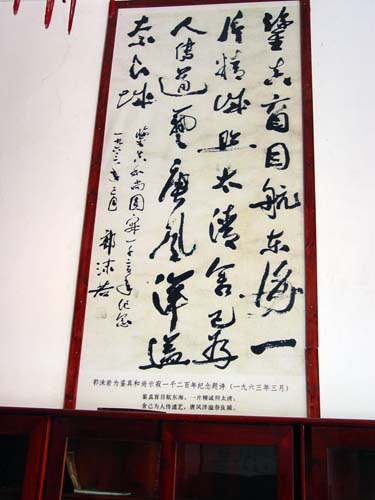 鑒真盲目航东海一
片精诚照太清舍己为
人传道藝唐风洋溢
奈良城
鑒真和尚圆寂一千二百年纪念
一九六三年三月 郭沫若
郭沫若为鉴真和尚示寂一千二百年纪念题诗（一九六三年三月）
鉴真盲目航东海，一片精诚照太清；
舍己为人传道艺，唐风洋溢奈良城。